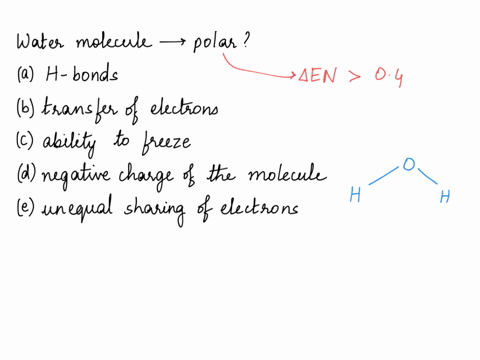 Water molecule → polar?
(a) H-bonds
ΔEN > 0.4
(b) transfer of electrons
(c) ability to freeze
(d) negative charge of the molecule
O
H H
(e) unequal sharing of electrons